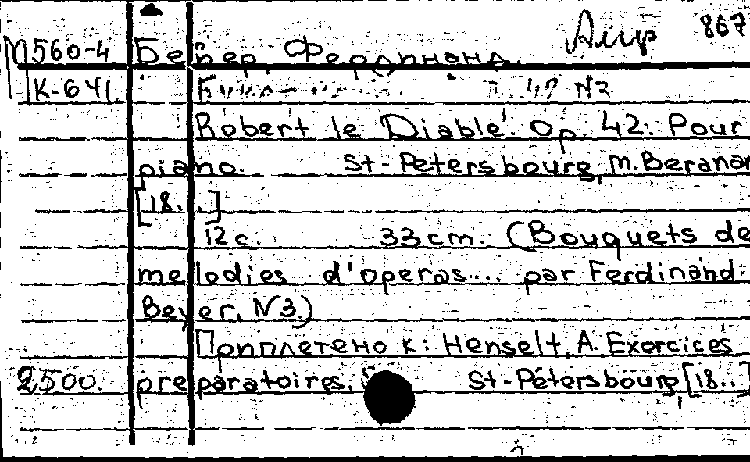 867
М560-4 Бейер, Фердинанд.
К-641.
Robert le Diable. Op. 42. Pour
piano. St-Petersbourg, M. Bernar
[18..]
12 с. 33 cm. (Bouquets de
melodies d'operas... par Ferdinand
Beyer. N3.)
Приплетено к: Henselt, A. Exercices
2500. preparatoires. St-Petersbourg, [18..]